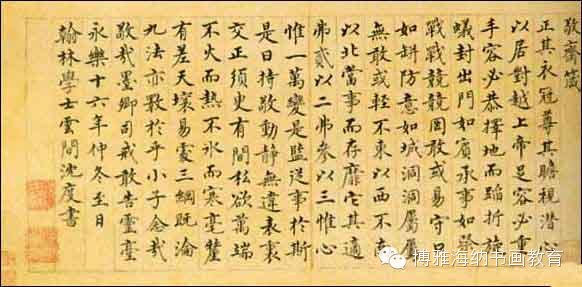 敬齋箴
正其衣冠尊其瞻視潜心
以居對越上帝足容必重
手容必恭擇地而蹈折旋
蟻封出門如賓承事如祭
戰戰兢兢罔敢或易守口
如缾防意如城洞洞屬屬
無敢或輕不東以西不南
以北當事而存靡它其適
弗貳以二弗參以三惟心
惟一萬變是監從事於斯
是曰持敬動静無違表裏
交正須臾有間私欲萬端
不火而熱不氷而寒毫釐
有差天壤易處三綱既淪
九法亦斁於乎小子念哉
敬哉墨卿司戒敢告靈臺
永樂十六年仲冬至日
翰林學士雲間沈度書
博雅海纳书画教育